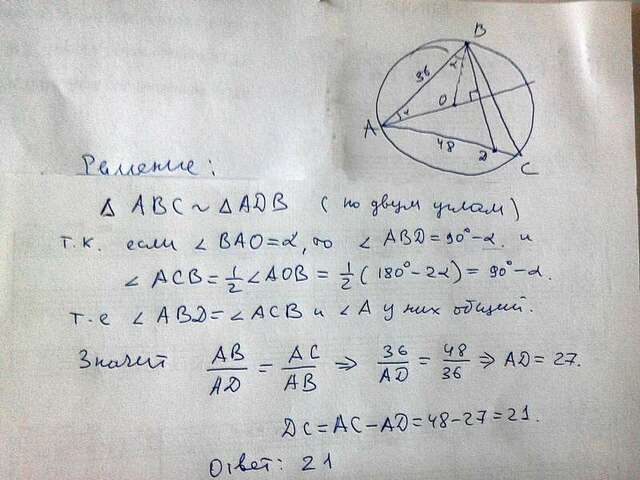 B
36
α
O
A
α
48
D
C
Решение:
Δ ABC ~ Δ ADB (по двум углам)
т.к. если ∠ BAO=α, то ∠ ABD=90°-α и
∠ ACB=1/2∠AOB=1/2(180°-2α)=90°-α.
т.е ∠ ABD=∠ ACB и ∠A у них общий.
Значит AB/AD = AC/AB ⇒ 36/AD = 48/36 ⇒ AD= 27.
DC=AC-AD=48-27=21.
Ответ: 21